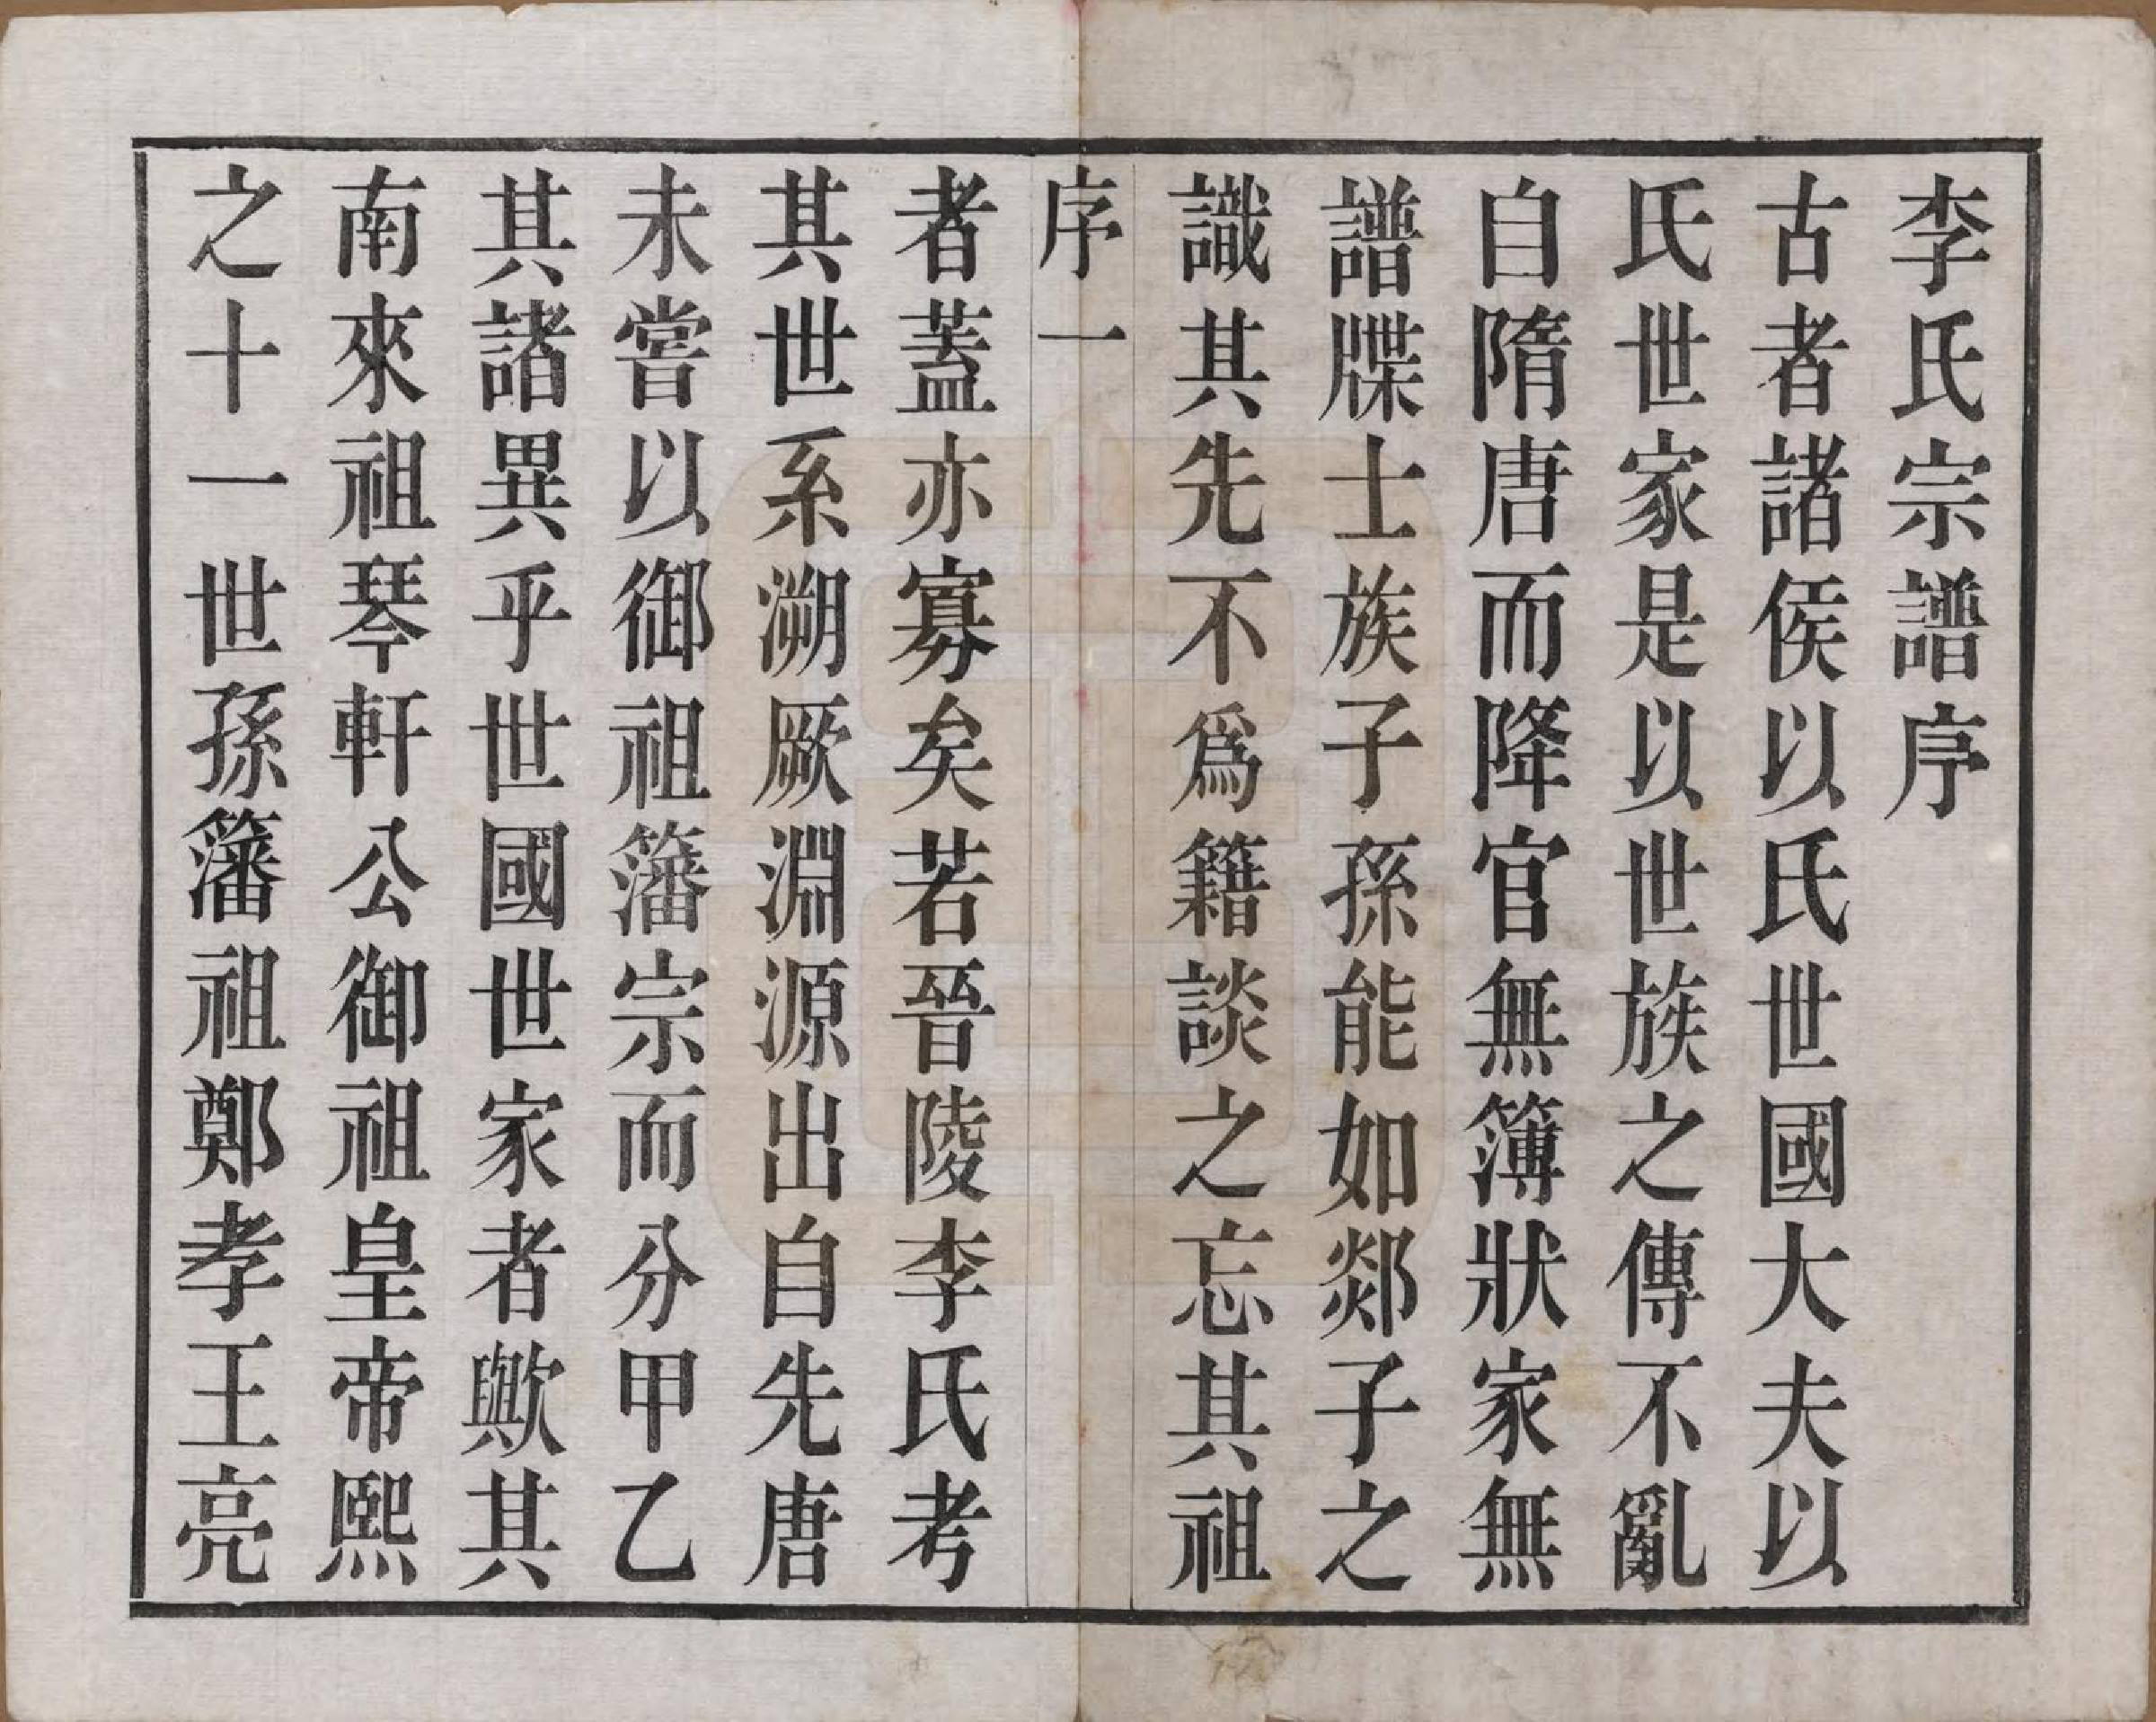 李氏宗譜序
古者諸侯以氏世國大夫以
氏世家是以世族之傳不亂
自隋唐而降官無簿狀家無
譜牒士族子孫能如郯子之
識其先不爲籍談之忘其祖
序一
者蓋亦寡矣若晉陵李氏考
其世系溯厥淵源出自先唐
未嘗以御祖籓宗而分甲乙
其諸異乎世國世家者歟其
南來祖琴軒公御祖皇帝熙
之十一世孫籓祖鄭孝王亮